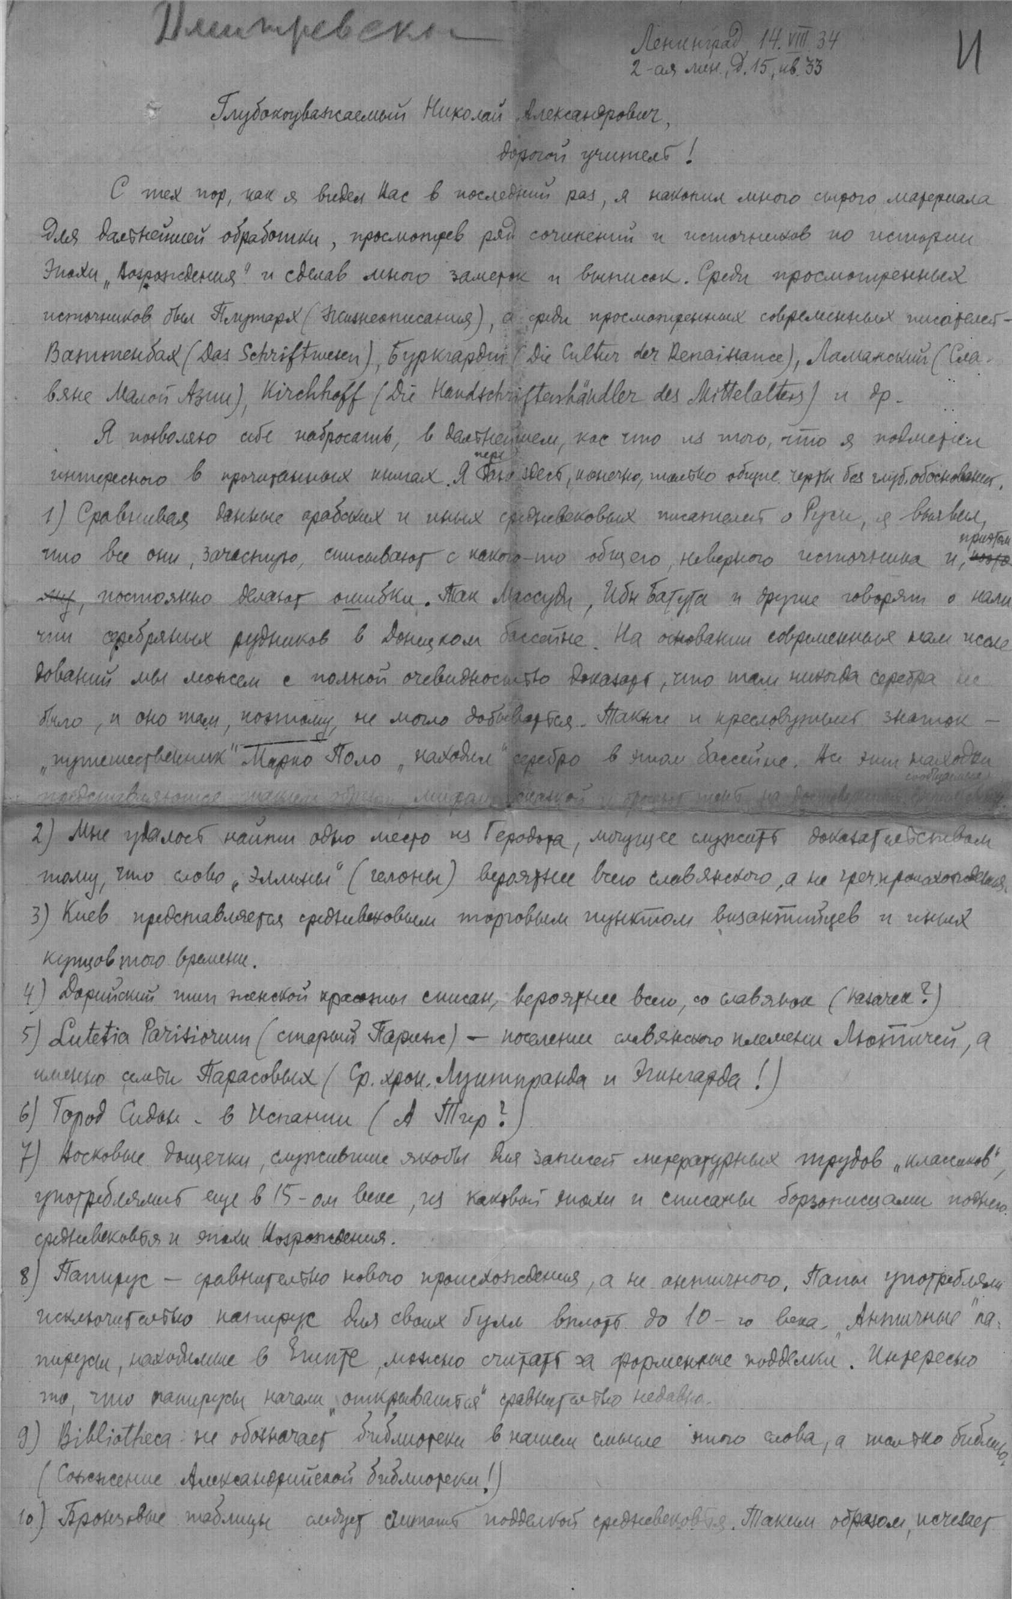 Дмитревски
Ленинград, 14.VIII.34
2-ая лин., д. 15, кв. 33
И
Глубокоуважаемый Николай Александрович,
дорогой учитель!
С тех пор, как я видел Вас в последний раз, я накопил много сырого материала
для дальнейшей обработки, просмотрев ряд сочинений и источников по истории
Эпохи „Возрождения" и сделав много заметок и выписок. Среди просмотренных
источников был Плутарх (Жизнеописания), а среди просмотренных современных писателей –
Ваттенбах (Das Schriftwesen), Буркгардт (Die Cultur der Renaissance), Ламанский (Сла-
вяне Малой Азии), Kirchhoff (Die Handschriftenhändler des Mittelalters) и др.
Я позволяю себе набросать, в дальнейшем, кое что из того, что я подметил
интересного в прочитанных книгах. Я даю здесь, конечно, только общие черты без глуб. обоснования.
1) Сравнивая данные арабских и иных средневековых писателей о Руси, я выявил,
что все они, зачастую, списывают с какого-то общего, неверного источника и, притом
постоянно делают ошибки. Так Массуди, Ибн Батута и другие говорят о нали
чии серебряных рудников в Донецком бассейне. На основании современных нам иссле
дований мы можем с полной очевидностью доказать, что там никогда серебра не
было, и оно там, поэтому, не могло добываться. Также и пресловутый знаток –
„путешественник" Марко Поло „находил" серебро в этом бассейне. Все эти находки
2) Мне удалось найти одно место из Геродота, могущее служить доказательством
тому, что слово „эллины" (гелоны) вероятнее всего славянского, а не греч. происхождения.
3) Киев представляется средневековым торговым пунктом византийцев и иных
купцов того времени.
4) Дорийский тип женской красоты списан, вероятнее всего, со славянок (казачек?)
5) Lutetia Parisiorum (старый Париж) – поселение славянского племени Лютичей, а
именно семьи Парасовых (Ср. хрон. Луитпранда и Эгингарда!)
6) Город Сидон – в Испании (А Тир?)
7) Восковые дощечки, служившие якобы для записей литературных трудов „классиков",
употреблялись еще в 15-ом веке, из каковой эпохи и списаны борзописцами позднего
средневековья и эпохи Возрождения.
8) Папирус – сравнительно нового происхождения, а не античного. Папы употребляли
исключительно папирус для своих булл вплоть до 10-го века. „Античные" па-
пирусы, находимые в Египте, можно считать за форменные подделки. Интересно
то, что папирусы начали „открываться" сравнительно недавно.
9) Bibliotheca не обозначает библиотеки в нашем смысле этого слова, а только библию.
(Сожжение Александрийской библиотеки!)
10) Бронзовые таблицы следует считать подделкой средневековья. Таким образом, исчезает